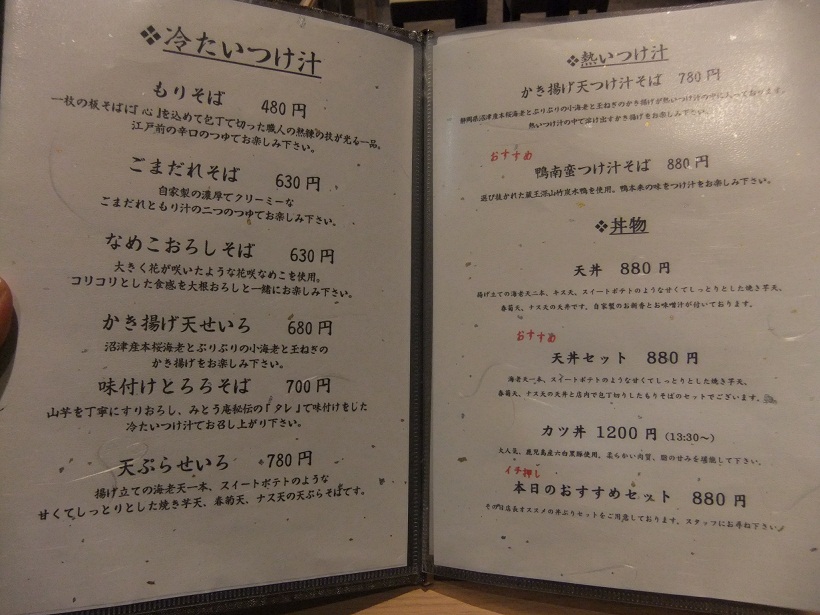 ❖冷たいつけ汁
もりそば 480円
一枚の板そばに「心」を込めて包丁で切った職人の熟練の技が光る一品。
江戸前の辛口のつゆでお楽しみ下さい。
ごまだれそば 630円
自家製の濃厚でクリーミーな
ごまだれともり汁の二つのつゆでお楽しみ下さい。
なめこおろしそば 630円
大きく花が咲いたような花咲なめこを使用。
コリコリとした食感を大根おろしと一緒にお楽しみ下さい。
かき揚げ天せいろ 680円
沼津産本桜海老とぷりぷりの小海老と玉ねぎの
かき揚げをお楽しみ下さい。
味付けとろろそば 700円
山芋を丁寧にすりおろし、みとう庵秘伝の「タレ」で味付けをした
冷たいつけ汁でお召し上がり下さい。
天ぷらせいろ 780円
揚げ立ての海老天一本、スイートポテトのような
甘くてしっとりとした焼き芋天、春菊天、ナス天の天ぷらそばです。
❖熱いつけ汁
かき揚げ天つけ汁そば 780円
静岡県沼津産本桜海老とぷりぷりの小海老と玉ねぎのかき揚げが熱いつけ汁の中に入っております。
熱いつけ汁の中で溶け出すかき揚げをお楽しみ下さい。
おすすめ
鴨南蛮つけ汁そば 880円
選び抜かれた蔵王深山竹炭水鴨を使用。鴨本来の味をつけ汁をお楽しみ下さい。
❖丼物
天丼 880円
揚げ立ての海老天二本、キス天、スイートポテトのような甘くてしっとりとした焼き芋天、
春菊天、ナス天の天丼です。自家製のお新香とお味噌汁が付いております。
おすすめ
天丼セット 880円
海老天一本、スイートポテトのような甘くてしっとりとした焼き芋天、
春菊天、ナス天の天丼と店内で包丁切りしたもりそばのセットでございます。
カツ丼 1200円 (13:30〜)
大人気、鹿児島産六白黒豚使用。柔らかい肉質、脂の甘みを堪能して下さい。
イチ押し
本日のおすすめセット 880円
その日店長オススメの丼ぶりセットをご用意しております。スタッフにお尋ね下さい。